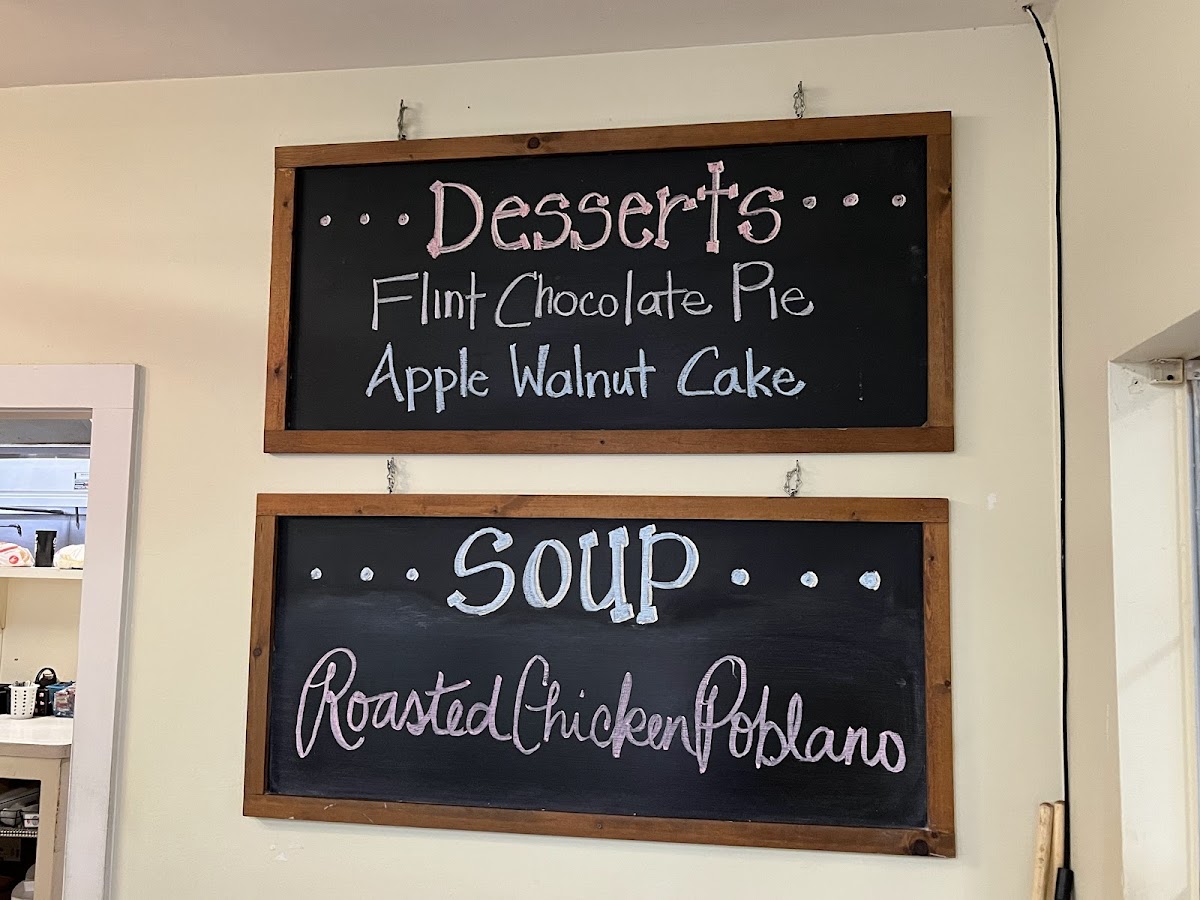 ... Desserts ...
Flint Chocolate Pie
Apple Walnut Cake
... Soup ...
Roasted Chicken Poblano